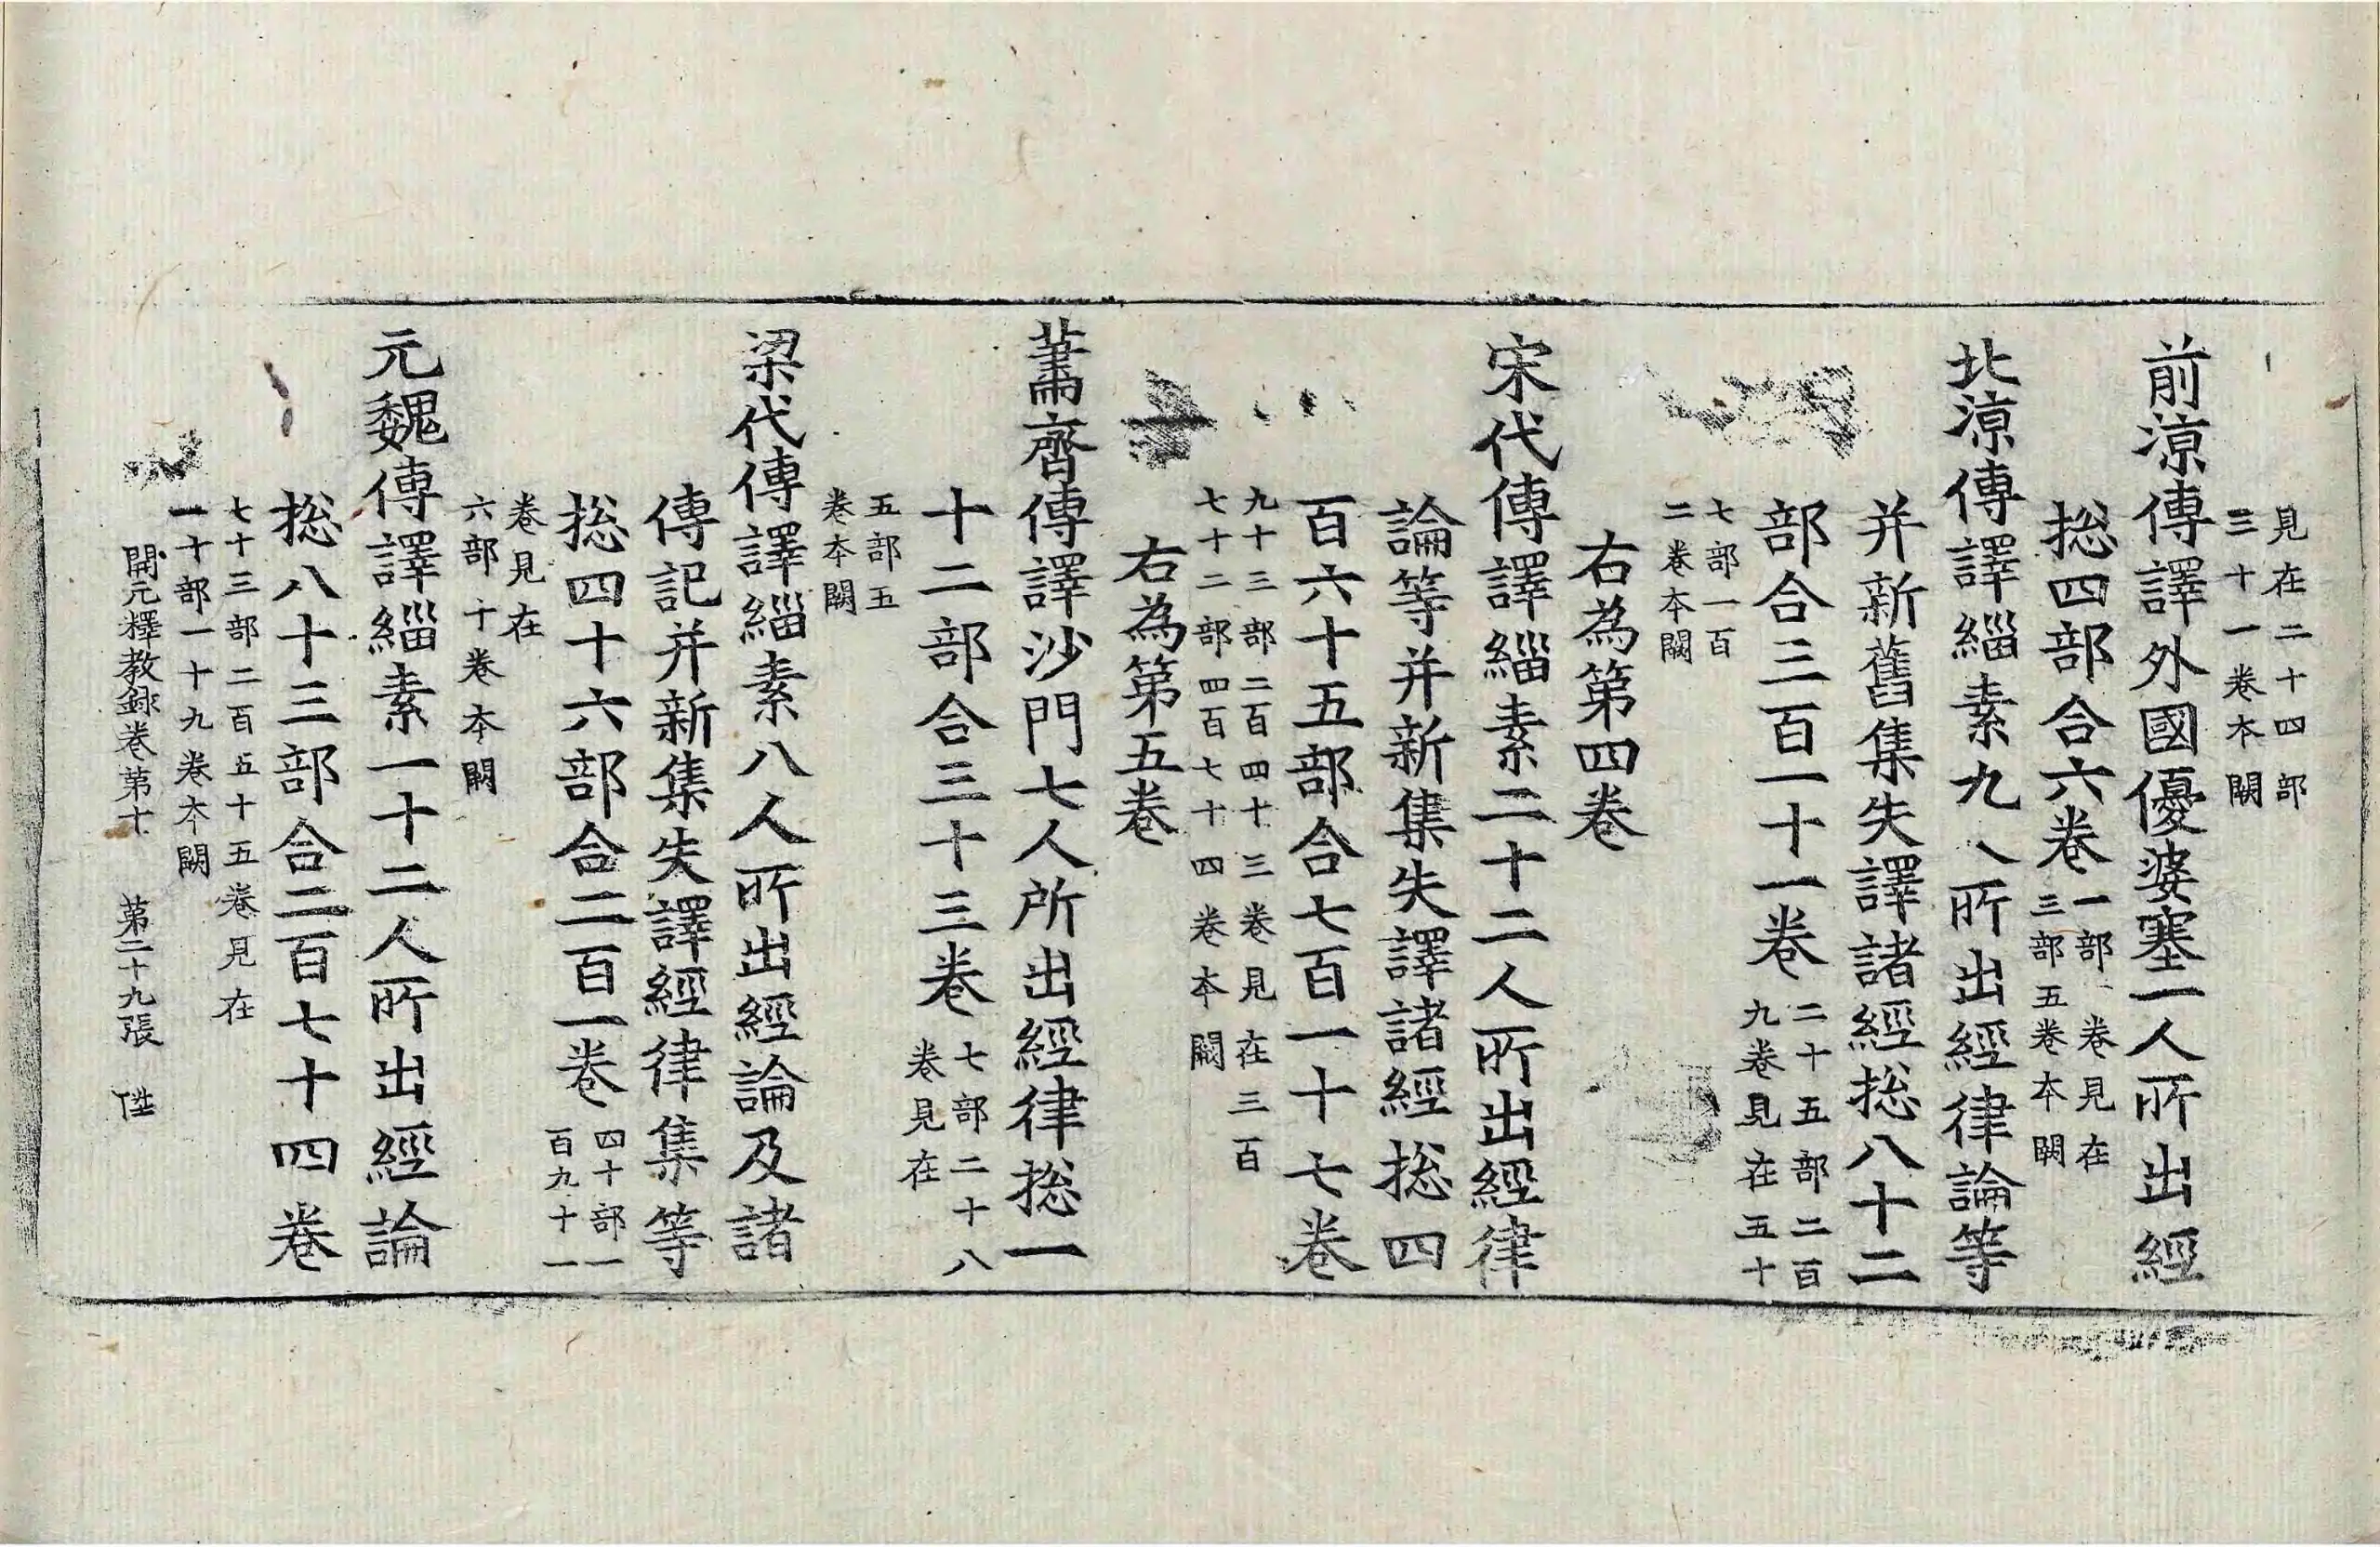 見在二十四部
三十一卷本闕
前涼傳譯外國優婆塞一人所出經
揔四部合六卷
一部一卷見在
三部五卷本闕
北涼傳譯緇素九人所出經律論等
并新舊集失譯諸經揔八十二
部合三百一十一卷
二十五部二百
九卷見在五十
七部一百
二卷本闕
右為第四卷
宋代傳譯緇素二十二人所出經律
論等并新集失譯諸經揔四
百六十五部合七百一十七卷
九十三部二百四十三卷見在三百
七十二部四百七十四卷本闕
右為第五卷
蕭齊傳譯沙門七人所出經律揔一
十二部合三十三卷
七部二十八
卷見在
五部五
卷本闕
梁代傳譯緇素八人所出經論及諸
傳記并新集失譯經律集等
揔四十六部合二百一卷
四十部一
百九十一
卷見在
六部十卷本闕
元魏傳譯緇素一十二人所出經論
揔八十三部合二百七十四卷
七十三部二百五十五卷見在
一十部一十九卷本闕
開元釋教錄卷第十 第二十九張